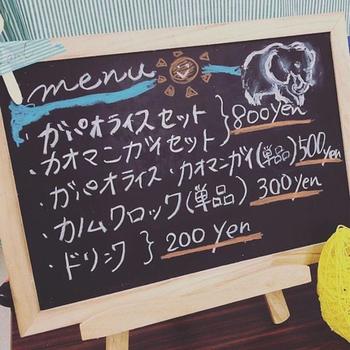 menu
・ガパオライスセット
・カオマンガイセット } 800yen
・ガパオライス・カオマンガイ(単品) 500yen
・カノムクロック(単品) 300yen
・ドリンク } 200yen